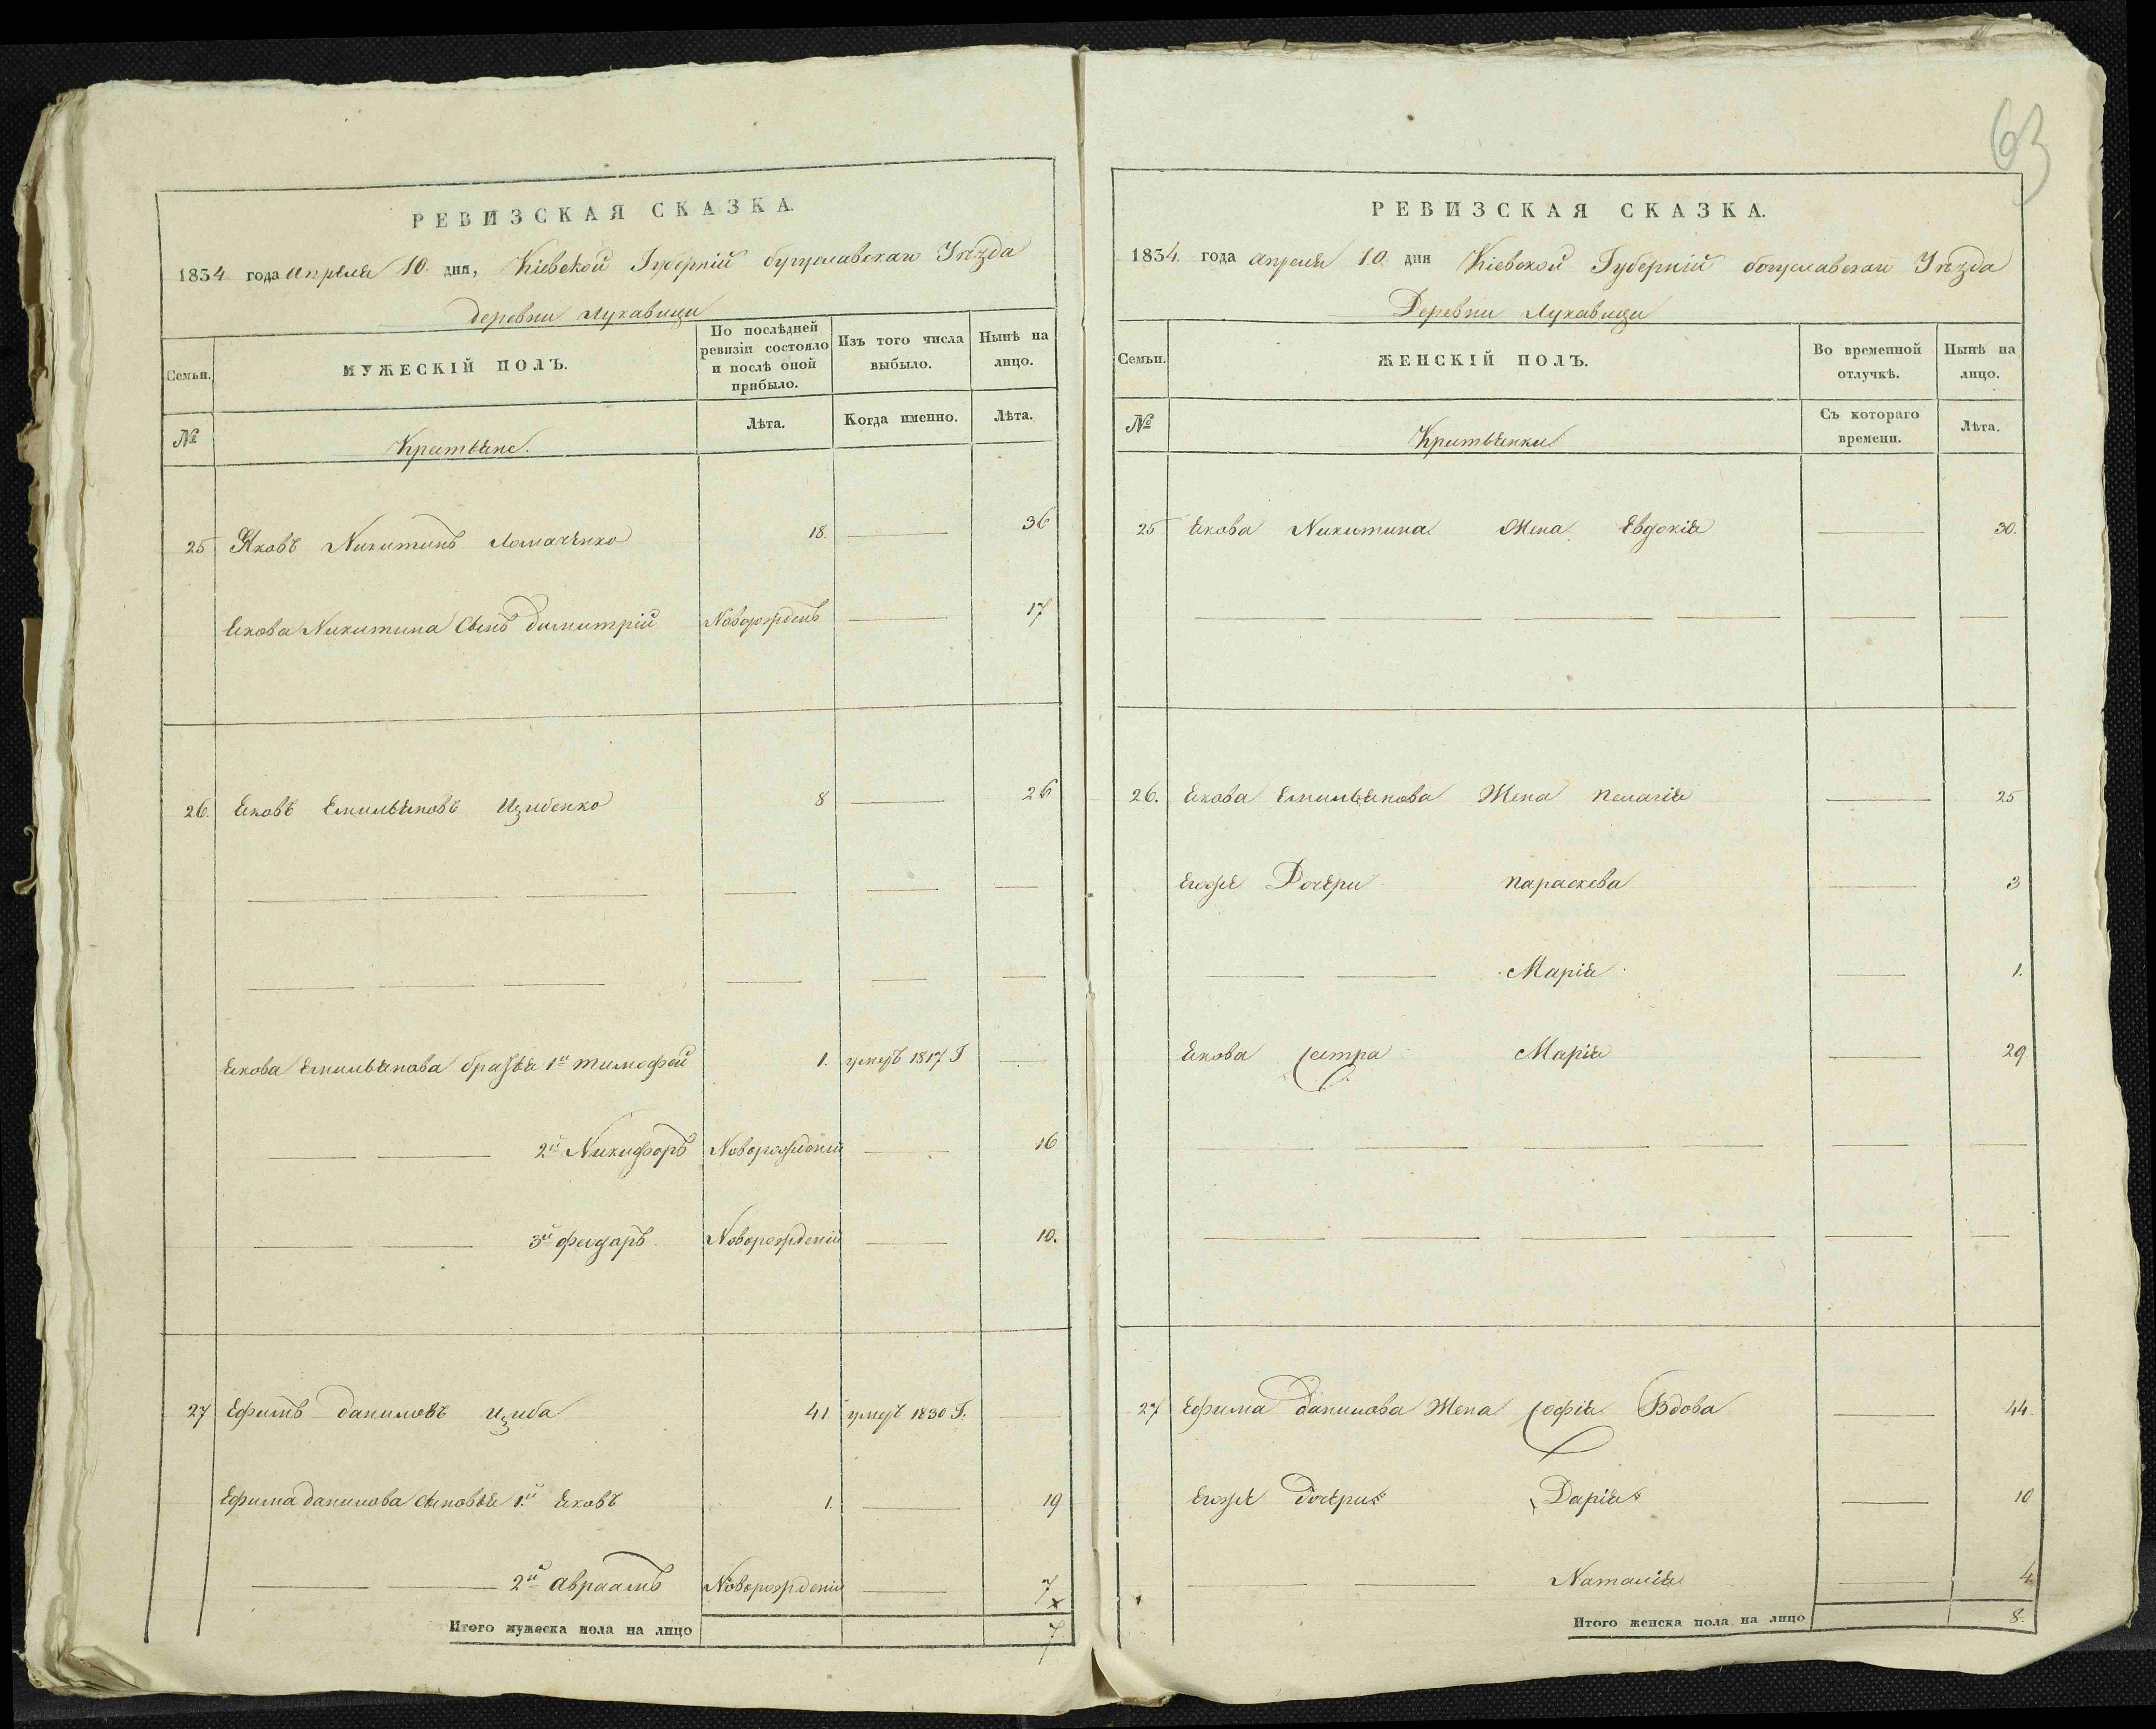 63
РЕВИЗСКАЯ СКАЗКА.
1834 года Апреля 10. дня, Кіевской Губерніи богуславскаго Уѣзда
деревни Лукавици
Семьи.
МУЖЕСКІЙ ПОЛЪ.
По послѣдней ревизіи состояло и послѣ оной прибыло.
Изъ того числа выбыло.
Нынѣ на лицо.
№
Крестьяне.
Лѣта.
Когда именно.
Лѣта.
25 Яковъ Никитинъ 18. 36
Якова Никитина Сынъ димитрій Новорожденъ 17
26. Яковъ Емильяновъ Цзибенко 8 26
Якова Емильянова братья 1й тимофей 1. умеръ 1817 Г
2й Никифоръ Новорожденій 16
3й феодаръ Новорожденій 10.
27 Ефимъ даниловъ Цзиба 41 умеръ 1830 Г.
Ефима данилова Сыновья 1.й Яковъ 1. 19
2й авраамъ Новорожденій 7
Итого мужеска пола на лицо 7
РЕВИЗСКАЯ СКАЗКА.
1834. года апреля 10. дня Кіевской Губерніи богуславскаго Уѣзда
Деревни Лукавици
Семьи.
ЖЕНСКІЙ ПОЛЪ.
Во временной отлучкѣ.
Нынѣ на лицо.
№
Крестьянки
Съ котораго времени.
Лѣта.
25 Якова Никитина Жена Евдокія 30.
26. Якова Емильянова Жена Пелагія 25
Егоже Дочери параскева 3
Марія 1.
Якова сестра Марія 29
27 Ефима данилова Жена софія Вдова 44.
Егоже дочери Дарія 10
Наталія 4.
Итого женска пола на лицо 8.